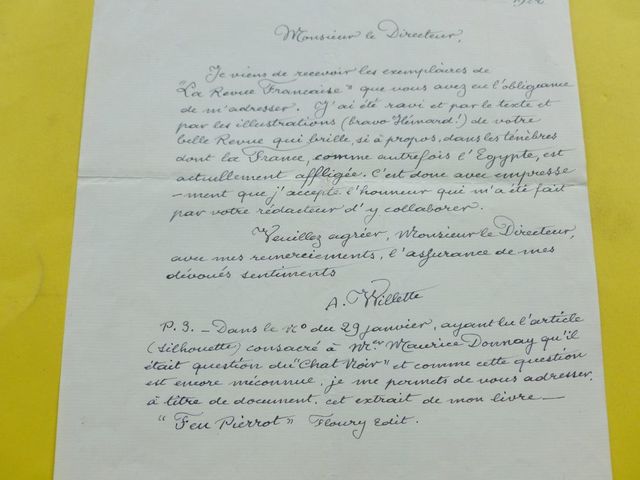 Monsieur le Directeur,
Je viens de recevoir les exemplaires de
"La Revue Française" que vous avez eu l'obligeance
de m'adresser. J'ai été ravi et par le texte et
par les illustrations (bravo Hémard!) de votre
belle Revue qui brille, si à propos, dans les ténèbres
dont la France, comme autrefois l'Egypte, est
actuellement affligée. C'est donc avec empresse
-ment que j'accepte l'honneur qui m'a été fait
par votre rédacteur d'y collaborer.
Veuillez agréer, Monsieur le Directeur,
avec mes remerciements, l'assurance de mes
dévoués sentiments
A. Willette
P.S. - Dans le No du 29 janvier, ayant lu l'article
(Silhouette) consacré à Mr Maurice Donnay qu'il
était question du "Chat Noir" et comme cette question
est encore méconnue, je me permets de vous adresser,
à titre de document, cet extrait de mon livre —
"Feu Pierrot" Floury Edit.